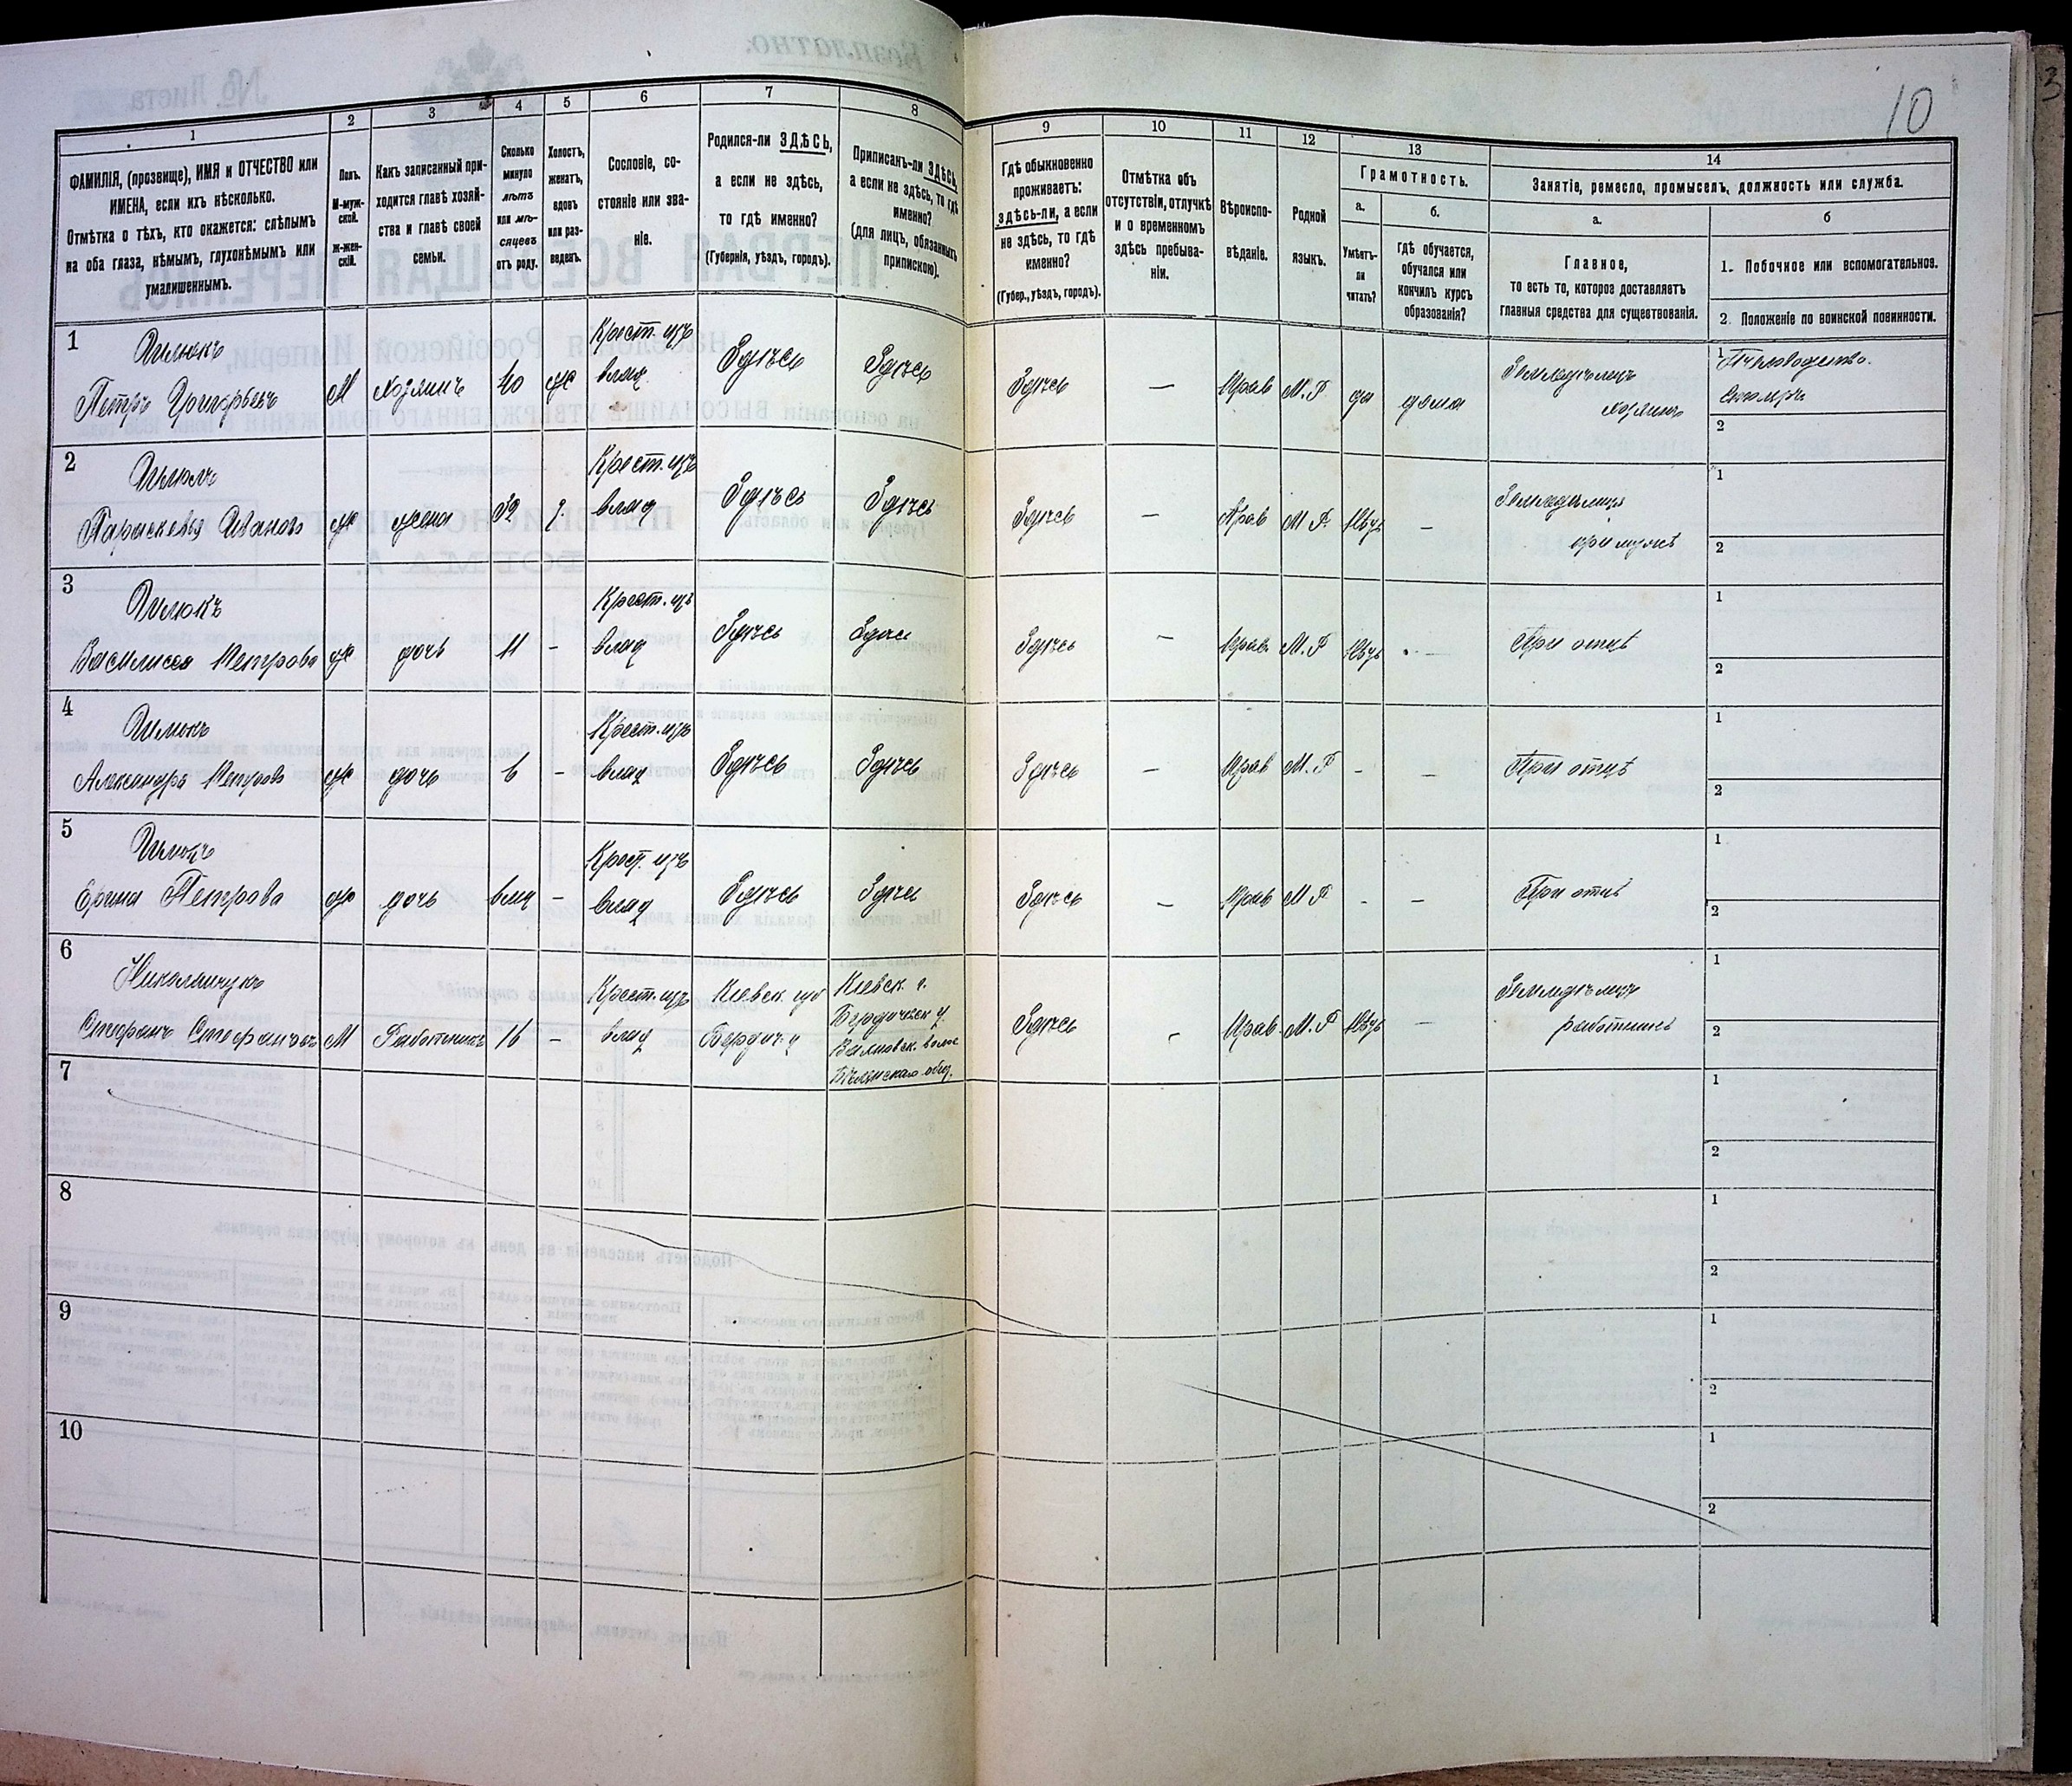 10
1
2
3
4
5
6
7
8
9
10
11
12
13
14
ФАМИЛІЯ, (прозвище), ИМЯ и ОТЧЕСТВО или
ИМЕНА, если ихъ нѣсколько.
Отмѣтка о тѣхъ, кто окажется: слѣпымъ
на оба глаза, нѣмымъ, глухонѣмымъ или
умалишеннымъ.
Полъ.
М-муж-
ской.
Ж-жен-
скій.
Какъ записанный при-
ходится главѣ хозяй-
ства и главѣ своей
семьи.
Сколько
минуло
лѣтъ
или мѣ-
сяцевъ
отъ роду.
Холостъ,
женатъ,
вдовъ
или раз-
веденъ.
Сословіе, со-
стояніе или зва-
ніе.
Родился-ли ЗДѢСЬ,
а если не здѣсь,
то гдѣ именно?
(Губернія, уѣздъ, городъ).
Приписанъ-ли ЗДѢСЬ,
а если не здѣсь, то гдѣ
именно?
(для лицъ, обязанныхъ
припискою).
Гдѣ обыкновенно
проживаетъ:
здѣсь-ли, а если
не здѣсь, то гдѣ
именно?
(Губер., уѣздъ, городъ).
Отмѣтка объ
отсутствіи, отлучкѣ
и о временномъ
здѣсь пребыва-
ніи.
Вѣроиспо-
вѣданіе.
Родной
языкъ.
Грамотность.
а.
Умѣетъ-
ли
читать?
б.
гдѣ обучается,
обучался или
кончилъ курсъ
образованія?
Занятіе, ремесло, промыселъ, должность или служба.
а.
Главное,
то есть то, которое доставляетъ
главныя средства для существованія.
б
1. Побочное или вспомогательное.
2. Положеніе по воинской повинности.
1
Петръ Григорьевъ
М
Хозяинъ
40
ж
Крест. изъ
влад
Здѣсь
Здѣсь
Здѣсь
—
Прав
М.Р
да
дома
Земледѣлецъ
хозяинъ
1
Пчеловодство.
2
2
Параскевья Иванова
ж
жена
39
з.
Крест. изъ
влад
Здѣсь
Здѣсь
Здѣсь
—
Прав
М Р.
—
Земледѣлица
при мужѣ
1
2
3
Василиса Петрова
ж
дочь
11
-
Крест. изъ
влад
Здѣсь
Здѣсь
Здѣсь
—
Прав.
М.Р
—
При отцѣ
1
2
4
Александра Петрова
ж
дочь
6
-
Крест. изъ
влад
Здѣсь
Здѣсь
Здѣсь
—
Прав
М.Р
-
—
При отцѣ
1
2
5
Ерина Петрова
ж
дочь
-
Крест. изъ
влад
Здѣсь
Здѣсь
Здѣсь
—
Прав
М Р
-
—
При отцѣ
1
2
6
Никольчукъ
Стефанъ Стефановъ
М
Работникъ
16
-
Крест. изъ
влад
Кіевск. губ
Бердич. у
Кіевск. г.
Бердическ у.
Здѣсь
-
Прав.
М.Р
—
работникъ
1
2
7
1
2
8
1
2
9
1
2
10
1
2